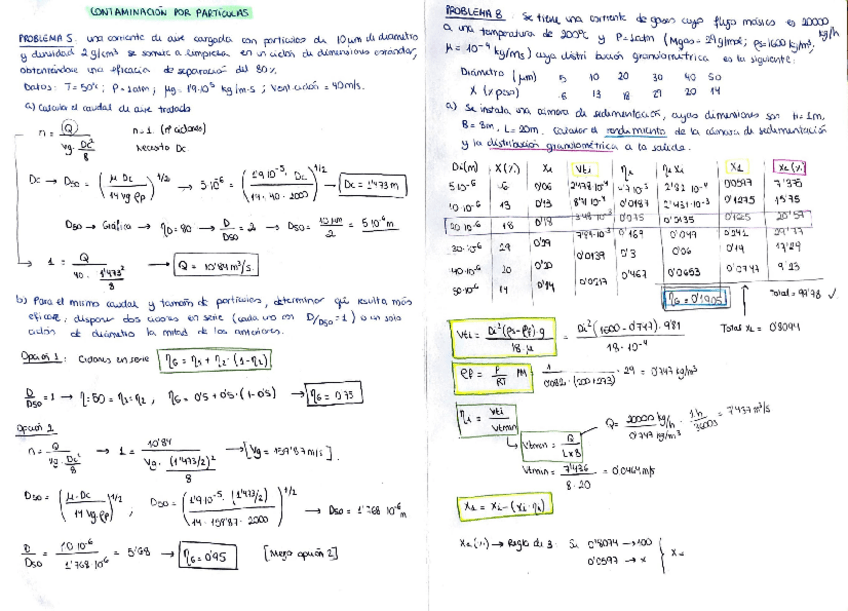 CONTAMINACIÓN POR PARTÍCULAS
PROBLEMA 5. una corriente de aire cargada con partículas de 10 µm de diámetro
y densidad 2 g/cm³ se somete a limpieza en un ciclón de dimensiones estándar,
obteniéndose una eficacia de separación del 80%.
Datos: T=50ºC; P=1atm; µg=1'9·10⁻⁵ kg/m·s; Vent ciclón=40m/s.
a) Calcular el caudal de aire tratado
n = Q / (Vg · Dc²/8)
n=1 (nº ciclones)
Necesito Dc
Dc → D50 = (µ Dc / 14 Vg ρp)^1/2 → 5·10⁻⁶ = (1'9·10⁻⁵ · Dc / 14 · 40 · 2000)^1/2 → Dc = 1'473 m
D50 → Gráfico → η0=80 → D/D50 = 2 → D50 = 10µm/2 = 5·10⁻⁶ m
→ 1 = Q / (40 · 1'473²/8) → Q = 10'84 m³/s
b) Para el mismo caudal y tamaño de partículas, determinar qué resulta más
eficaz, disponer dos ciclones en serie (cada uno con D/D50=1) o un solo
ciclón de diámetro la mitad de los anteriores.
Opción 1: Ciclones en serie ηG = η1 + η2 · (1-η1)
D/D50 = 1 → η=50=η1=η2, ηG = 0'5 + 0'5·(1-0'5) → ηG = 0'75
Opción 2
n = Q / (Vg · Dc²/8) → 1 = 10'84 / (Vg · (1'473/2)²/8) → [Vg = 159'87 m/s].
D50 = (µ·Dc / 14 Vg ρp)^1/2, D50 = (1'9·10⁻⁵ · (1'473/2) / 14 · 159'87 · 2000)^1/2 → D50 = 1'768·10⁻⁶ m
D/D50 = 10·10⁻⁶ / 1'768·10⁻⁶ = 5'68 → ηG = 0'95 [Mejor opción 2]
PROBLEMA 8. Se tiene una corriente de gases cuyo flujo másico es 20000 kg/h
a una temperatura de 200ºC y P=1atm (Mgas=29 g/mol; ρs=1600 kg/m³;
µ=10⁻⁴ kg/ms) cuya distribución granulométrica es la siguiente:
Diámetro (µm) 5 10 20 30 40 50
X (% peso) 6 13 18 29 20 14
a) Se instala una cámara de sedimentación, cuyas dimensiones son H=1m,
B=8m, L=20m. Calcular el rendimiento de la cámara de sedimentación
y la distribución granulométrica a la salida.
Di(m) X(%) Xi Vti ηi ηi Xi X1 X1(%)
5·10⁻⁶ 6 0'06
10·10⁻⁶ 13 0'13 0'0187 2'431·10⁻³ 0'1275 15'75
20·10⁻⁶ 18 0'18
30·10⁻⁶ 29 0'29
40·10⁻⁶ 20 0'20
50·10⁻⁶ 14 0'14
ηG = 0'1905
Total = 99'78 ✓
Total X1 = 0'8094
Vti = Di²(ρs-ρg)·g / 18·µ = Di²(1600-0'747)·9'81 / 18·10⁻⁴
ρg = P/RT · PM 1 / 0'082·(200+273) · 29 = 0'747 kg/m³
ηi = Vti / Vtmin
Q = 20000 kg/h / 0'747 kg/m³ · 1h / 3600s = 7'437 m³/s
→ Vtmin = Q / L×B
Vtmin = 7'436 / 8·20 = 0'0464 m/s
X1 = Xi - (Xi·ηi)
X1(%) → Regla de 3 Si 0'8074 → 100
0'0597 → x